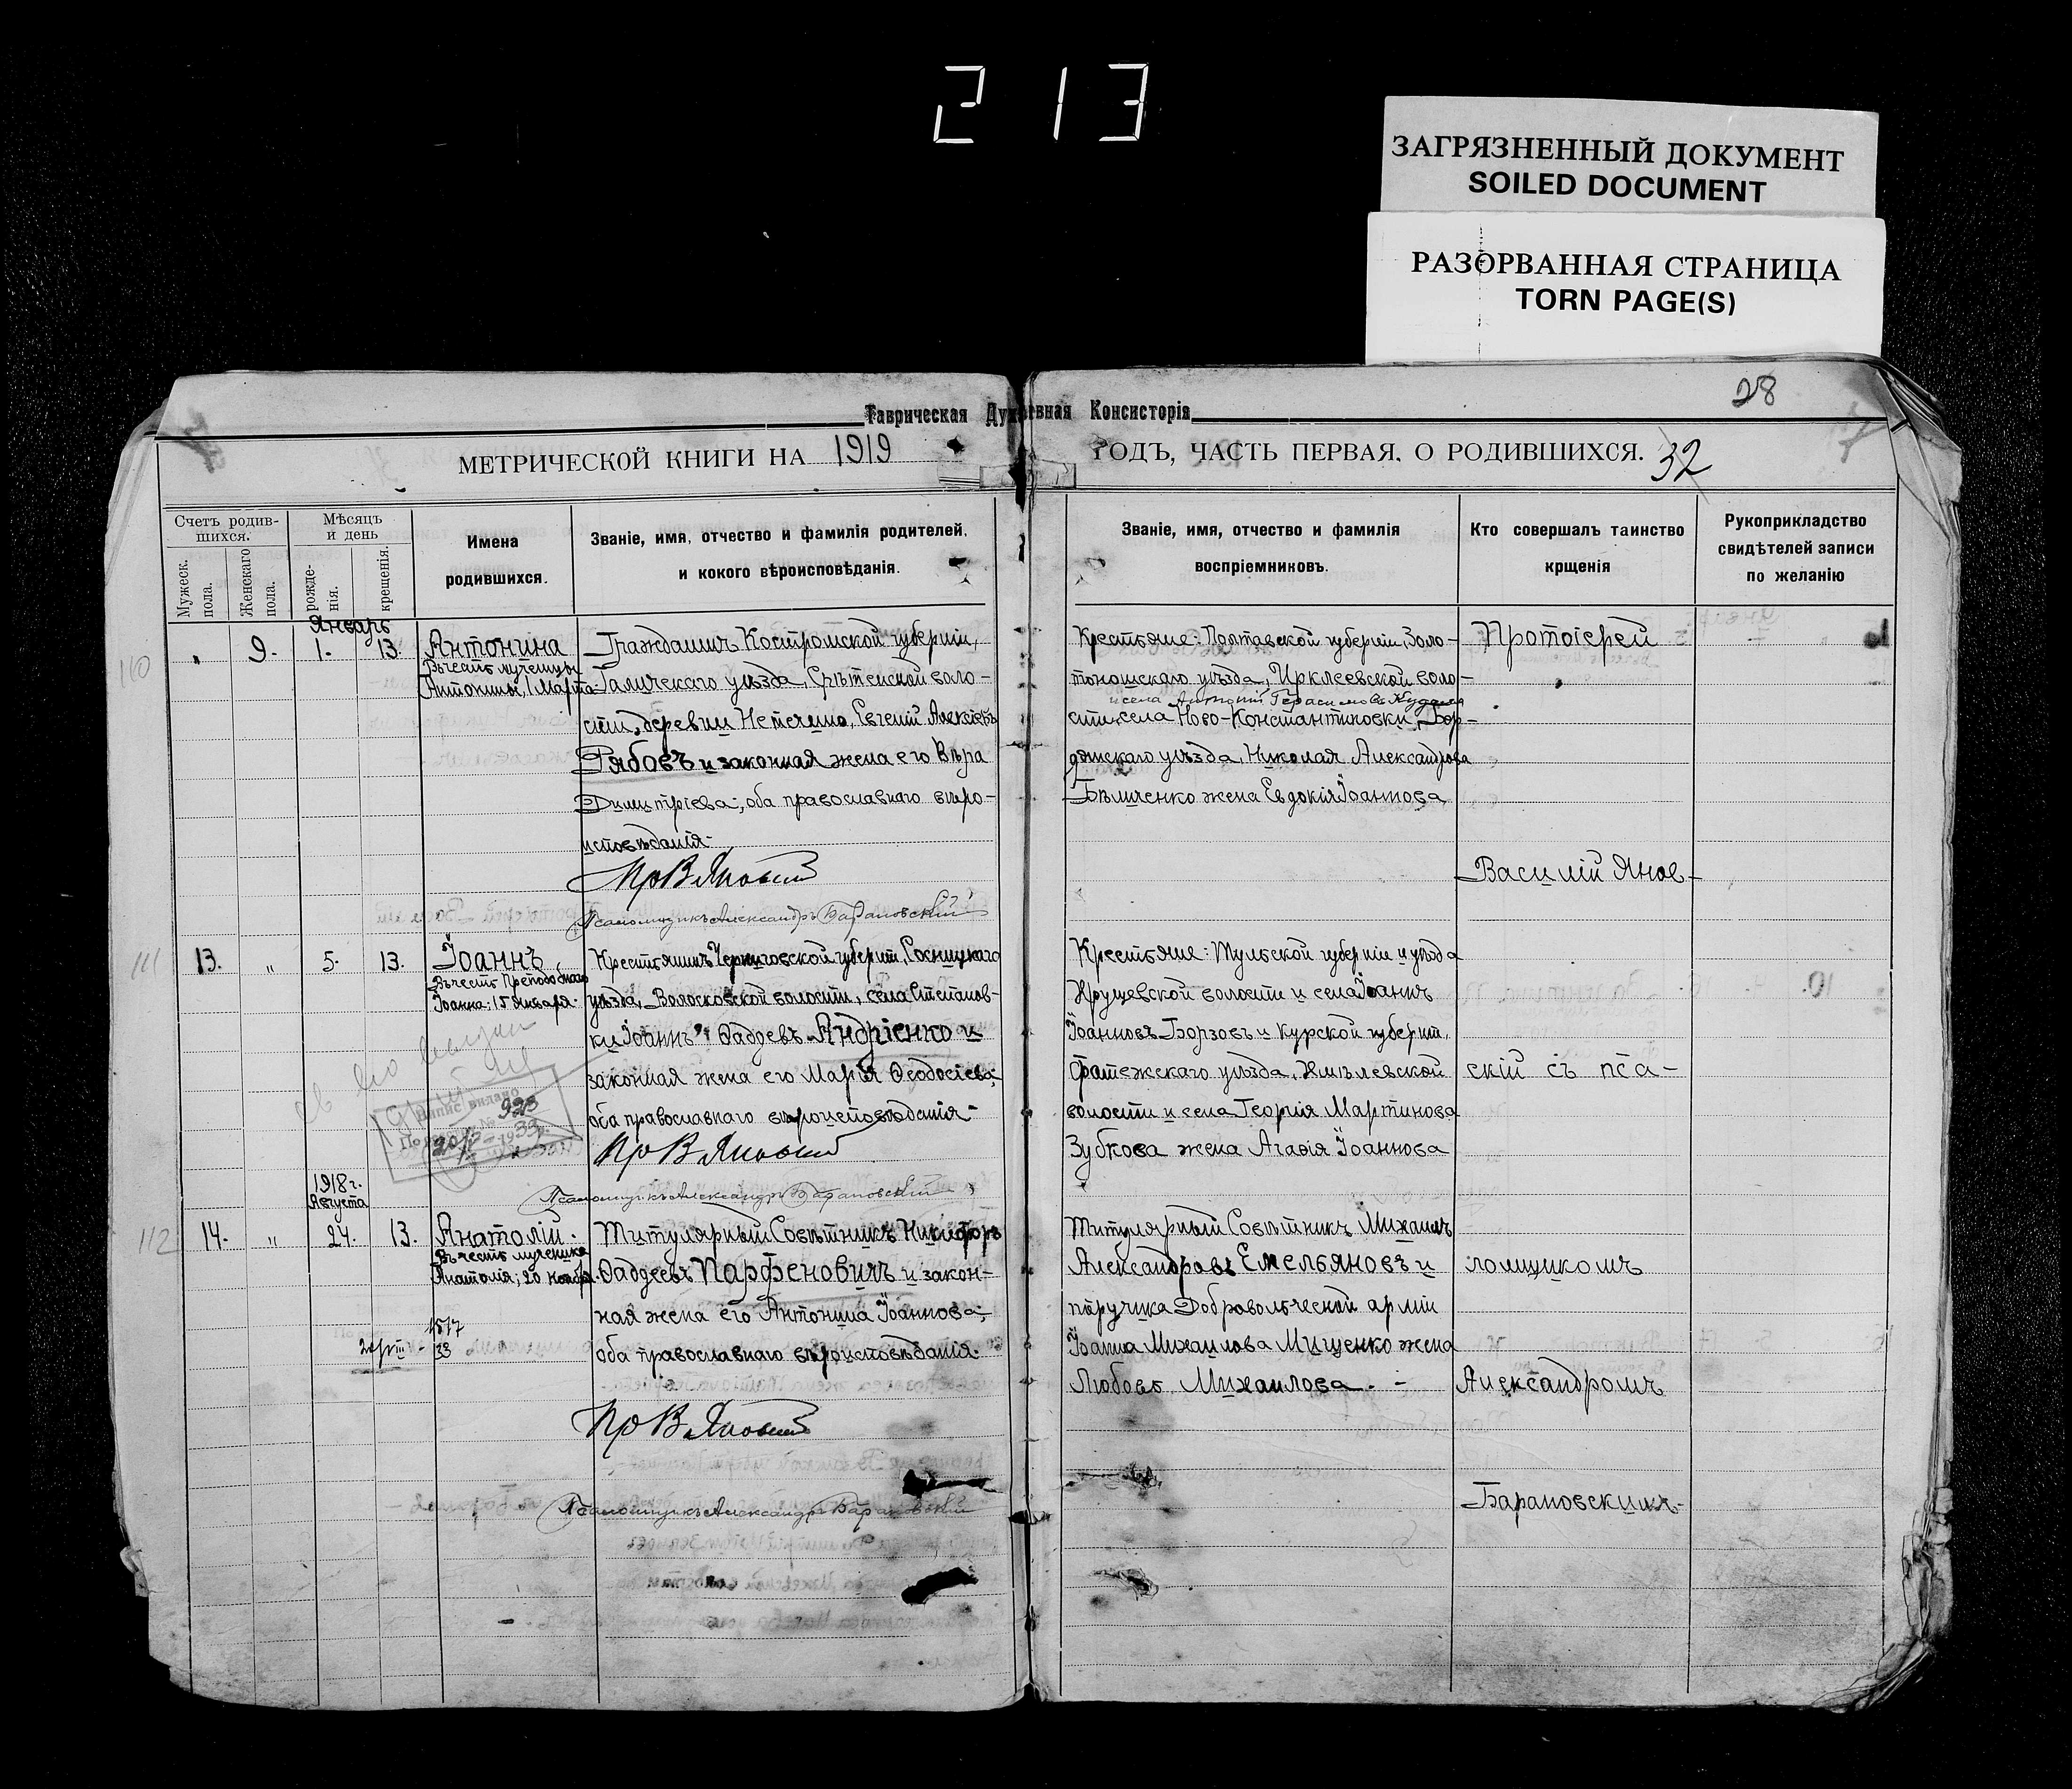 213
ЗАГРЯЗНЕННЫЙ ДОКУМЕНТ
SOILED DOCUMENT
РАЗОРВАННАЯ СТРАНИЦА
TORN PAGE(S)
28
Таврическая Духовная Консисторія
МЕТРИЧЕСКОЙ КНИГИ НА 1919 ГОДЪ, ЧАСТЬ ПЕРВАЯ, О РОДИВШИХСЯ. 32
Счетъ родив-
шихся.
Мужеск.
пола.
Женскаго
пола.
Мѣсяцъ
и день
рожде-
нія.
крещенія.
Имена
родившихся.
Званіе, имя, отчество и фамилія родителей,
и кокого вѣроисповѣданія.
Званіе, имя, отчество и фамилія
воспріемниковъ.
Кто совершалъ таинство
крщенія
Рукоприкладство
свидѣтелей записи
по желанію
110
Январь
" 9. 1. 13.
Антонина
Въ честь мученицы
Антонины, 1 Марта.
Гражданинъ Костромской губерніи,
Галичскаго уѣзда, Срѣтенской воло-
сти, деревни Нетечино, Евгеній Алексіевъ
Рябовъ и законная жена его Вѣра
Димитріева; оба православнаго вѣро-
исповѣданія.
Пр В Яновскій
Псаломщикъ Александръ Барановскій
Крестьяне: Полтавской губерніи, Золо-
тоношскаго уѣзда, Ирклеевской воло-
и села Антоній Герасимовъ
сти села Ново-Константиновки, Бер-
дянскаго уѣзда, Николая Александрова
Бѣличенко жена Евдокія Іоаннова
Протоіерей
Василій Янов-
111
13. " 5. 13.
Іоаннъ
Въ честь Преподобнаго
Іоанна: 15 Января.
Крестьянинъ Черниговской губерніи, Сосницкаго
уѣзда, Волосковской волости, села Степанов-
ки Іоаннъ Ѳаддеевъ Андріенко и
законная жена его Марія Ѳеодосіева;
оба православнаго вѣроисповѣданія.
Пр В Яновскій
Псаломщикъ Александръ Барановскій
Крестьяне: Тульской губерніи и уѣзда
Хрущевской волости и села Іоаннъ
Іоанновъ Борзовъ и Курской губерніи,
Фатежскаго уѣзда, Хмѣлевской
волости и села Георгія Мартинова
Зубкова жена Агаѳія Іоаннова
скій съ пса-
Випис видано
923
1918 г.
Августа
112
14. " 24. 13.
Анатолій.
Въ честь мученика
Анатолія; 20 ноября.
Титулярный Совѣтникъ Никифоръ
Ѳаддеевъ Парфеновичъ и закон-
ная жена его Антонина Іоаннова;
оба православнаго вѣроисповѣданія.
Пр В Яновскій
Псаломщикъ Александръ Барановскій
Титулярный Совѣтникъ Михаилъ
Александровъ Емельяновъ и
поручика Добровольческой арміи
Іоанна Михаилова Мищенко жена
Любовь Михаилова.
ломщикомъ
Александромъ
Барановскимъ.